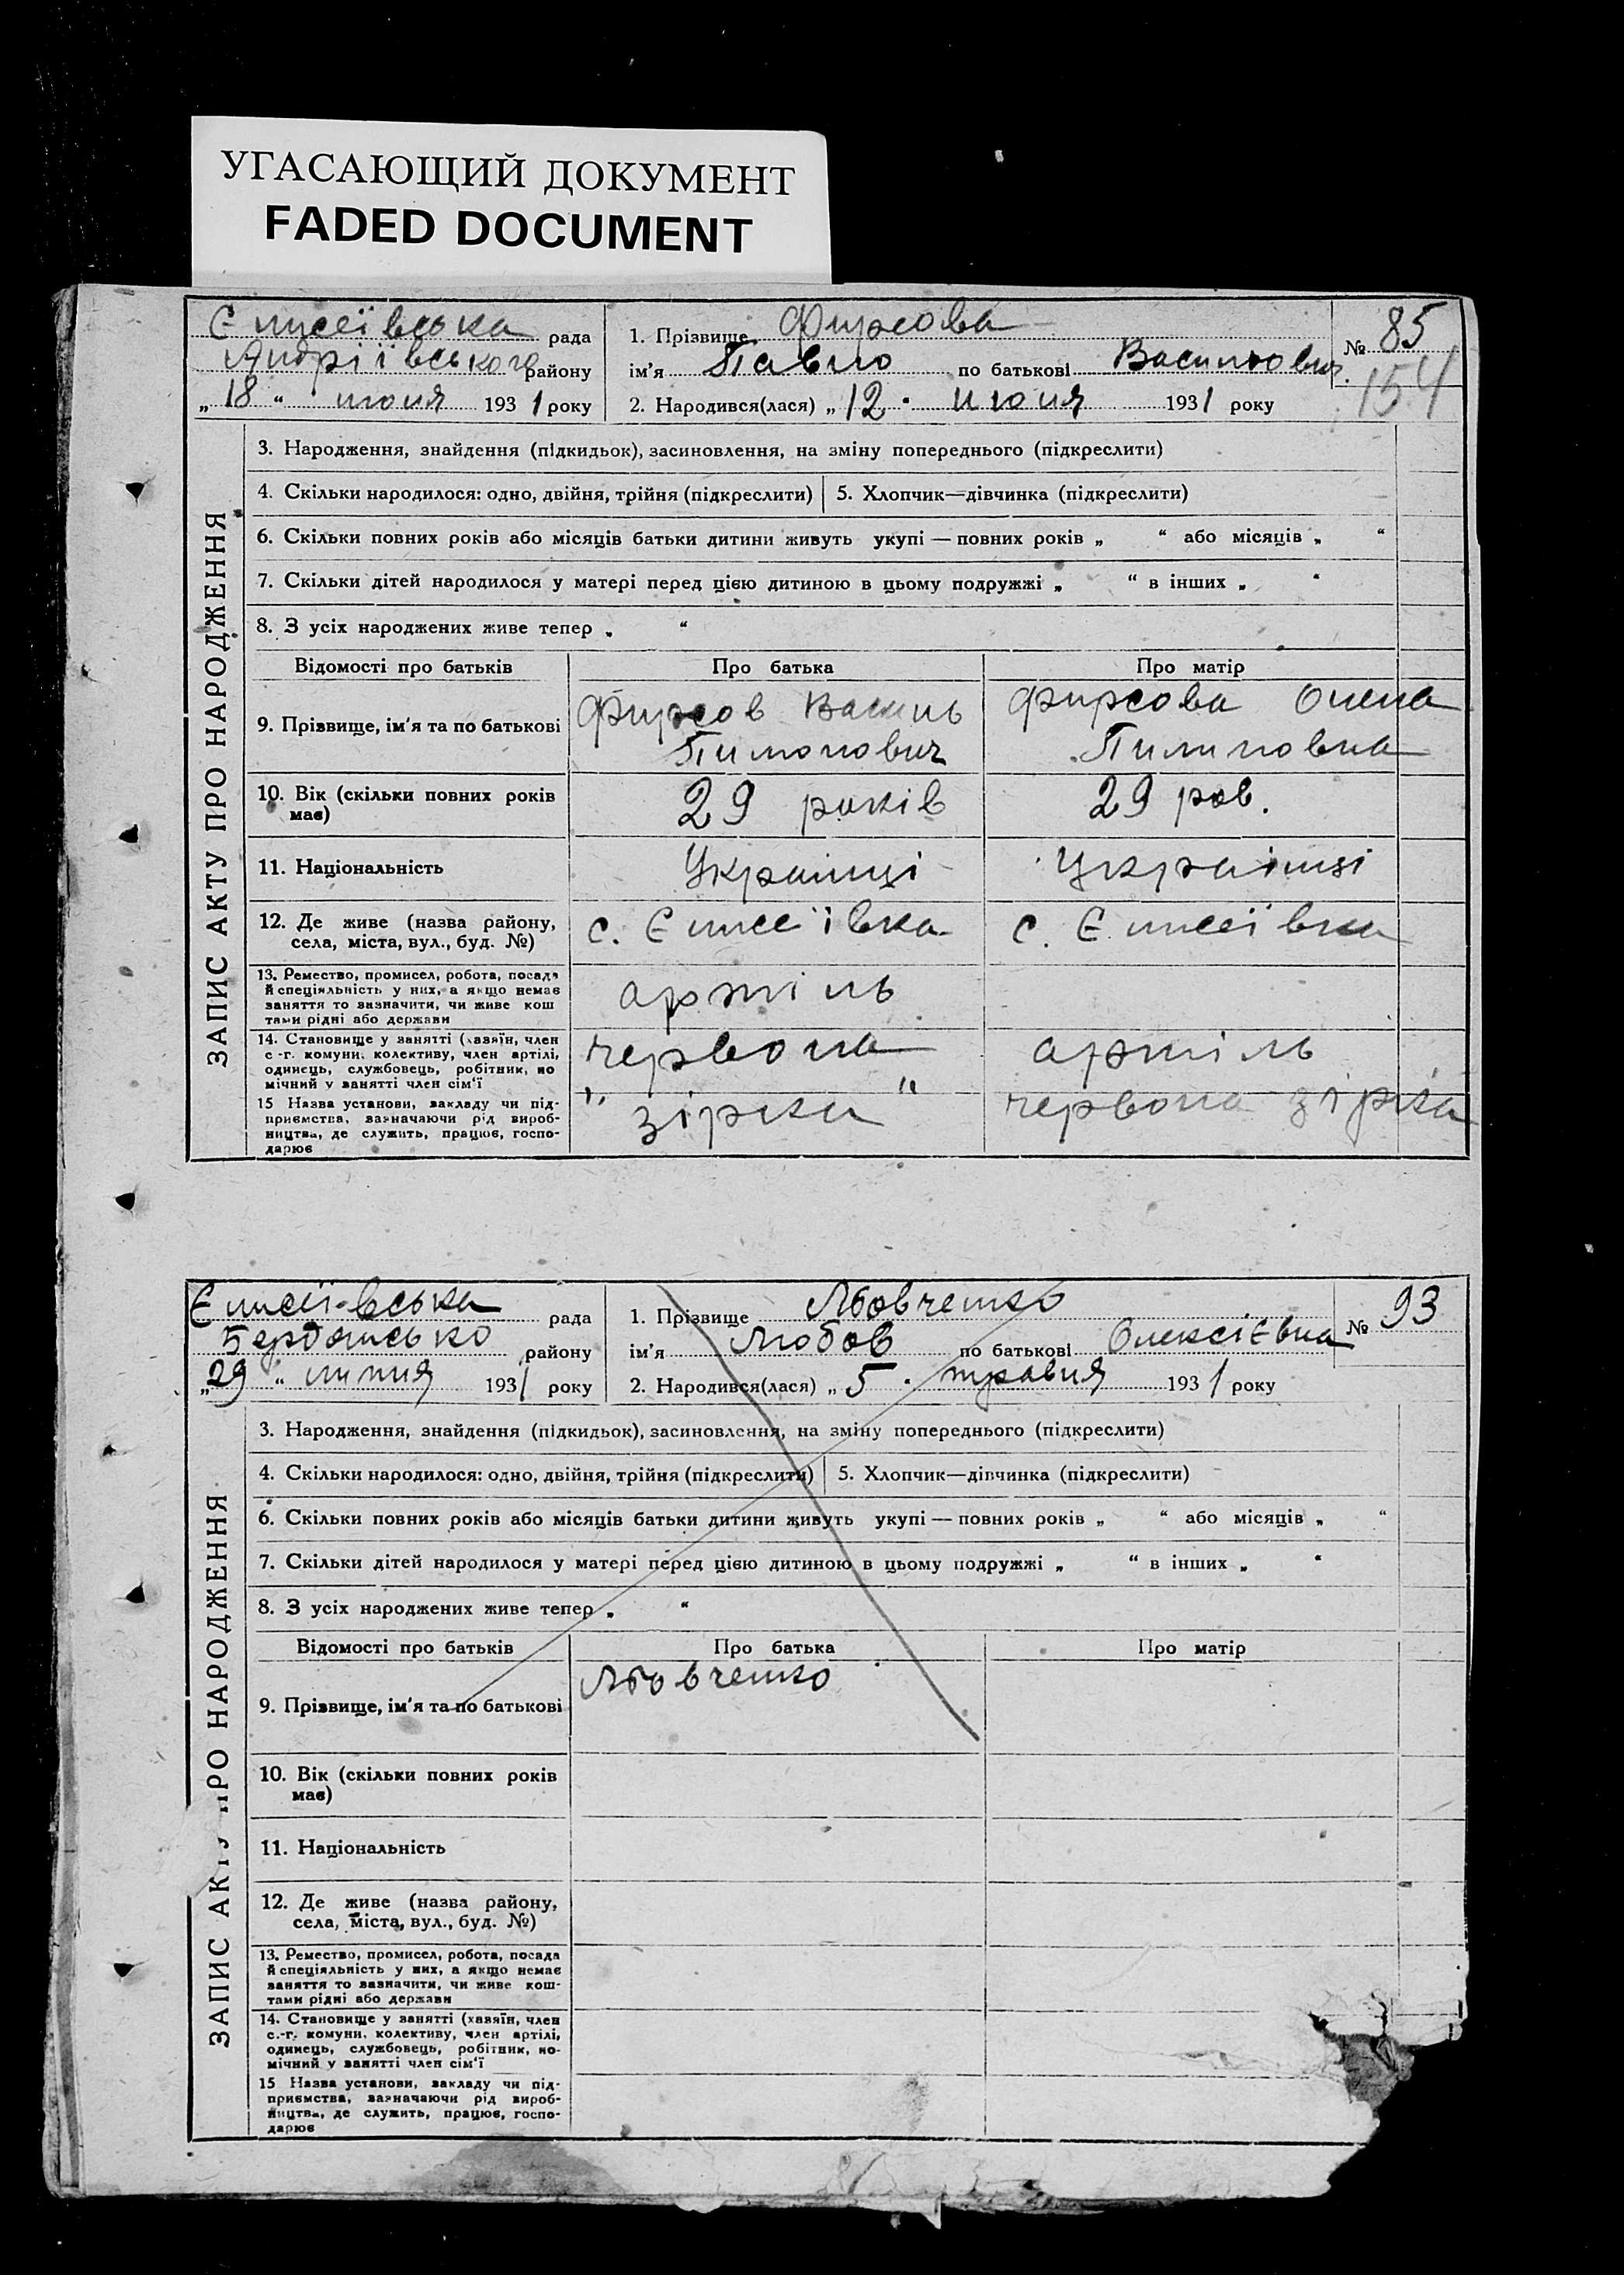 УГАСАЮЩИЙ ДОКУМЕНТ
FADED DOCUMENT
Єлисеївська рада
Андріівського району
„ 18 “ июня 1931 року
1. Прізвище Фирсова
ім'я Павло по батькові Васильович.
2. Народився(лася) „ 12 “ июня 1931 року
№ 85
154
ЗАПИС АКТУ ПРО НАРОДЖЕННЯ
3. Народження, знайдення (підкидьок), засиновлення, на зміну попереднього (підкреслити)
4. Скільки народилося: одно, двійня, трійня (підкреслити) 5. Хлопчик—дівчинка (підкреслити)
6. Скільки повних років або місяців батьки дитини живуть укупі — повних років „ “ або місяців „ “
7. Скільки дітей народилося у матері перед цією дитиною в цьому подружжі „ “ в інших „ “
8. З усіх народжених живе тепер „ “
Відомості про батьків Про батька Про матір
9. Прізвище, ім'я та по батькові
Фирсов Василь
Пимонович
Фирсова Олена
Пилиповна
10. Вік (скільки повних років
має)
29 років
29 ров.
11. Національність
Українці
Українці
12. Де живе (назва району,
села, міста, вул., буд. №)
с. Єлисеівка
с. Єлисеївка
13. Ремество, промисел, робота, посада
й спеціяльність у них, а якщо немає
заняття то зазначити, чи живе кош
тами рідні або держави
артіль
14. Становище у занятті (хазяїн, член
с-г. комуни, колективу, член артілі,
одинець, службовець, робітник, по
мічний у занятті член сім'ї
червона
артіль
15 Назва установи, закладу чи під-
приємства, зазначаючи рід вироб-
ництва, де служить, працює, госпо-
дарює
„ зірка “
червона зірка
Єлисеівська рада
Бердянсько району
„ 29 “ липня 1931 року
1. Прізвище Льовченко
ім'я Любов по батькові Олексієвна
2. Народився(лася) „ 5 “ травня 1931 року
№ 93
ЗАПИС АКТУ ПРО НАРОДЖЕННЯ
3. Народження, знайдення (підкидьок), засиновлення, на зміну попереднього (підкреслити)
4. Скільки народилося: одно, двійня, трійня (підкреслити) 5. Хлопчик—дівчинка (підкреслити)
6. Скільки повних років або місяців батьки дитини живуть укупі — повних років „ “ або місяців „ “
7. Скільки дітей народилося у матері перед цією дитиною в цьому подружжі „ “ в інших „ “
8. З усіх народжених живе тепер „ “
Відомості про батьків Про батька Про матір
9. Прізвище, ім'я та по батькові
Льовченко
10. Вік (скільки повних років
має)
11. Національність
12. Де живе (назва району,
села, міста, вул., буд. №)
13. Ремество, промисел, робота, посада
й спеціяльність у них, а якщо немає
заняття то зазначити, чи живе кош-
тами рідні або держави
14. Становище у занятті (хазяїн, член
с.-г. комуни, колективу, член артілі,
одинець, службовець, робітник, по-
мічний у занятті член сім'ї
15 Назва установи, закладу чи під-
приємства, зазначаючи рід вироб-
ництва, де служить, працює, госпо-
дарює